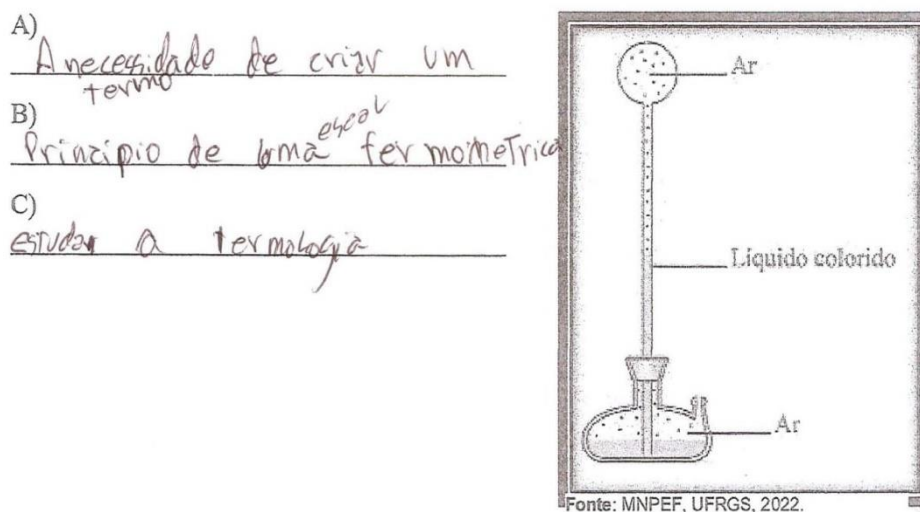 A)
A necessidade de criar um
termo
B)
Principio de uma escal termometrica
C)
estudar a termologia
Ar
Líquido colorido
Ar
Fonte: MNPEF, UFRGS, 2022.